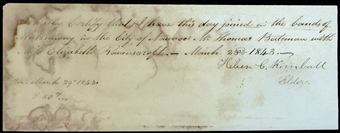 I hereby Certify that I have this day joined in the bands of
Matrimony, in the City of Nauvoo Mr. Thomas Bateman with
Miss Elizabeth Ravenscroft — March 23rd 1843. —
Heber C. Kimball
Elder
March 29th 1843